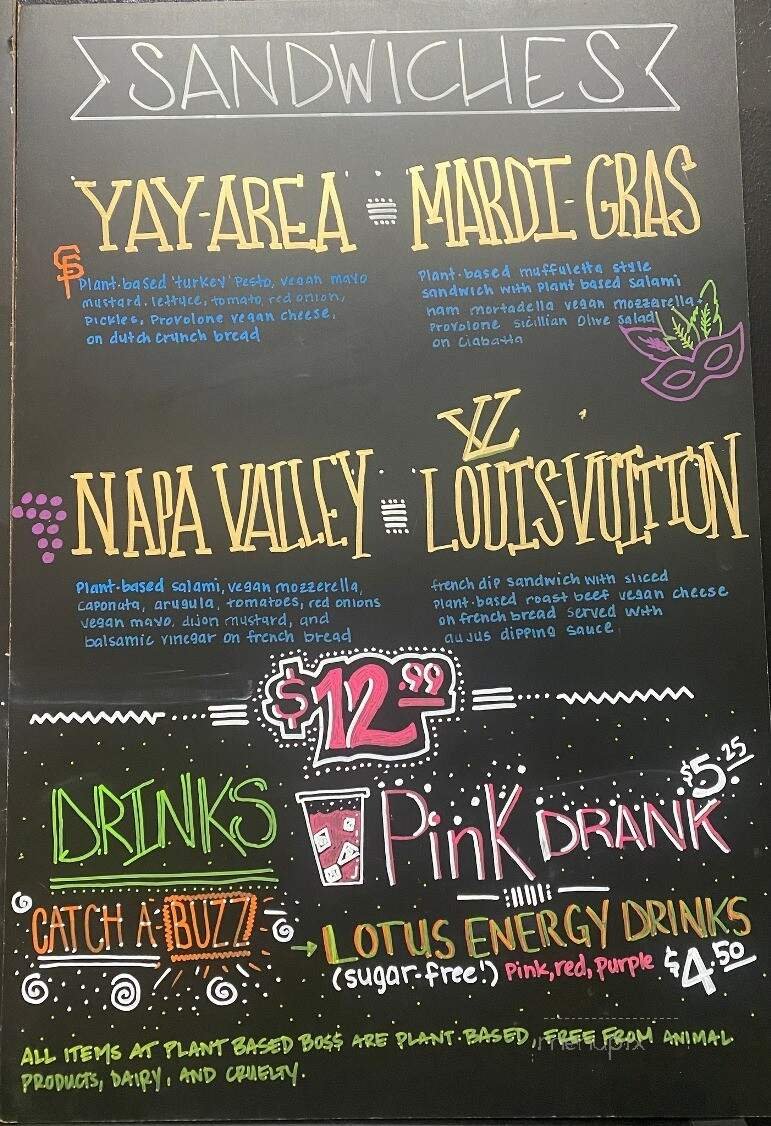 SANDWICHES
YAY-AREA
MARDI-GRAS
SF
Plant-based 'turkey' Pesto, vegan mayo
mustard, lettuce, tomato, red onion,
Pickles, Provolone vegan cheese,
on dutch crunch bread
Plant-based muffuletta style
sandwich with Plant based salami
ham mortadella vegan mozzarella
Provolone Sicillian Olive Salad
on Ciabatta
NAPA VALLEY
LV
LOUIS-VUITTON
Plant-based salami, vegan mozzerella,
caponata, arugula, tomatoes, red onions
vegan mayo, dijon mustard, and
balsamic vinegar on french bread
french dip sandwich with sliced
Plant-based roast beef vegan cheese
on french bread served with
au jus dipping sauce
$12.99
DRINKS
PinK DRANK
$5.25
CATCH A BUZZ
LOTUS ENERGY DRINKS
(sugar-free!) Pink, red, Purple $4.50
ALL ITEMS AT PLANT BASED BO$$ ARE PLANT-BASED, FREE FROM ANIMAL
PRODUCTS, DAIRY, AND CRUELTY.
menupix